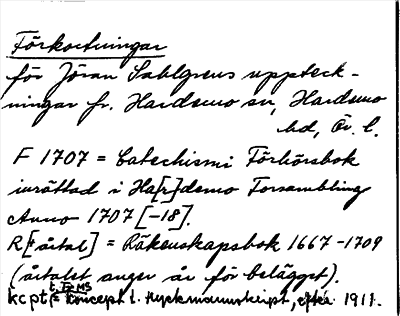 Förkortningar
för Jöran Sahlgrens uppteck-
ningar fr. Hardemo sn, Hardemo
hd, Ör. l.
F 1707 = Catechismi Förhörsbok
inrättad i Ha[r]demo Forsambling
Anno 1707 [-18].
R[+årtal] = Räkenskapsbok 1667-1709
(årtalet anger år för belägget).
kcpt = Koncept t. tryckmanuskript, efter 1911.